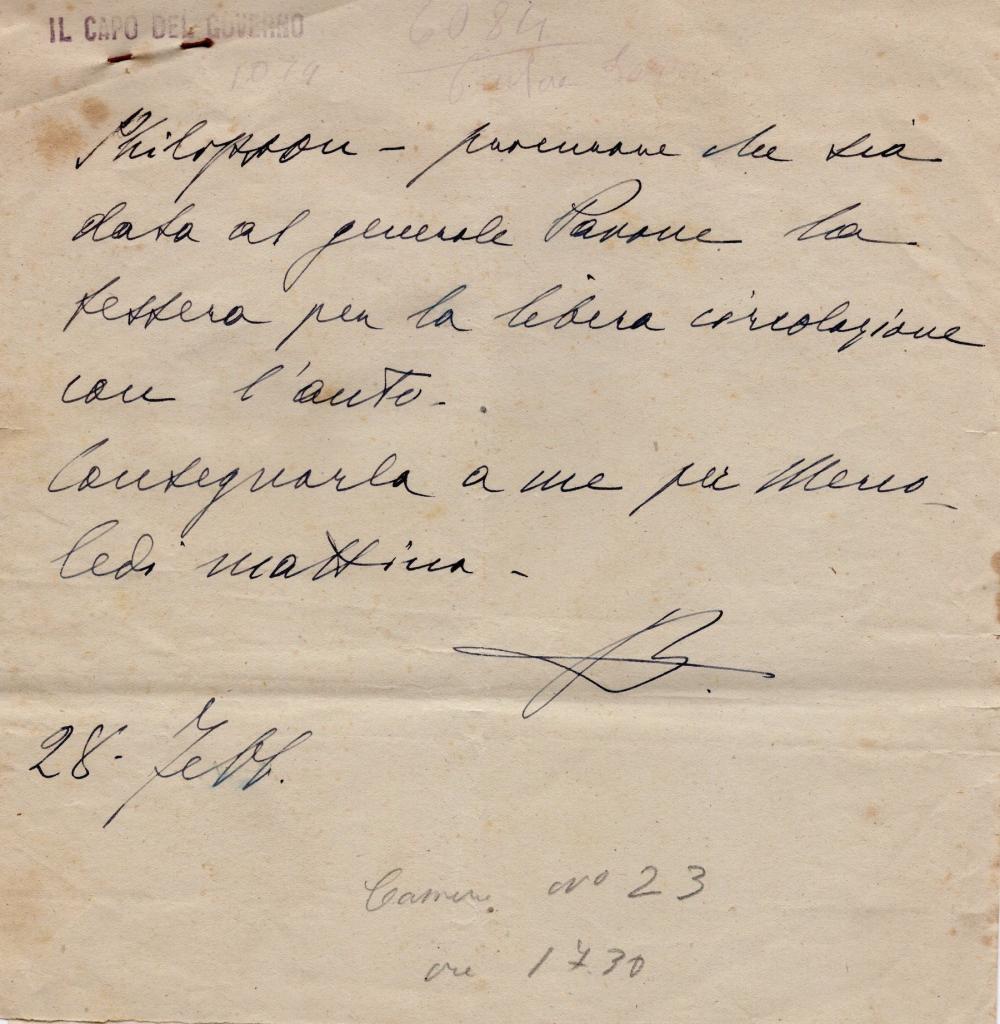 IL CAPO DEL GOVERNO
6084
1074
Philippson - procurare che sia
data al generale Pavone la
tessera per la libera circolazione
con l'auto.
Consegnarla a me per Merco-
ledi mattina -
B.
28. Febb.
Camera n° 23
ore 17.30